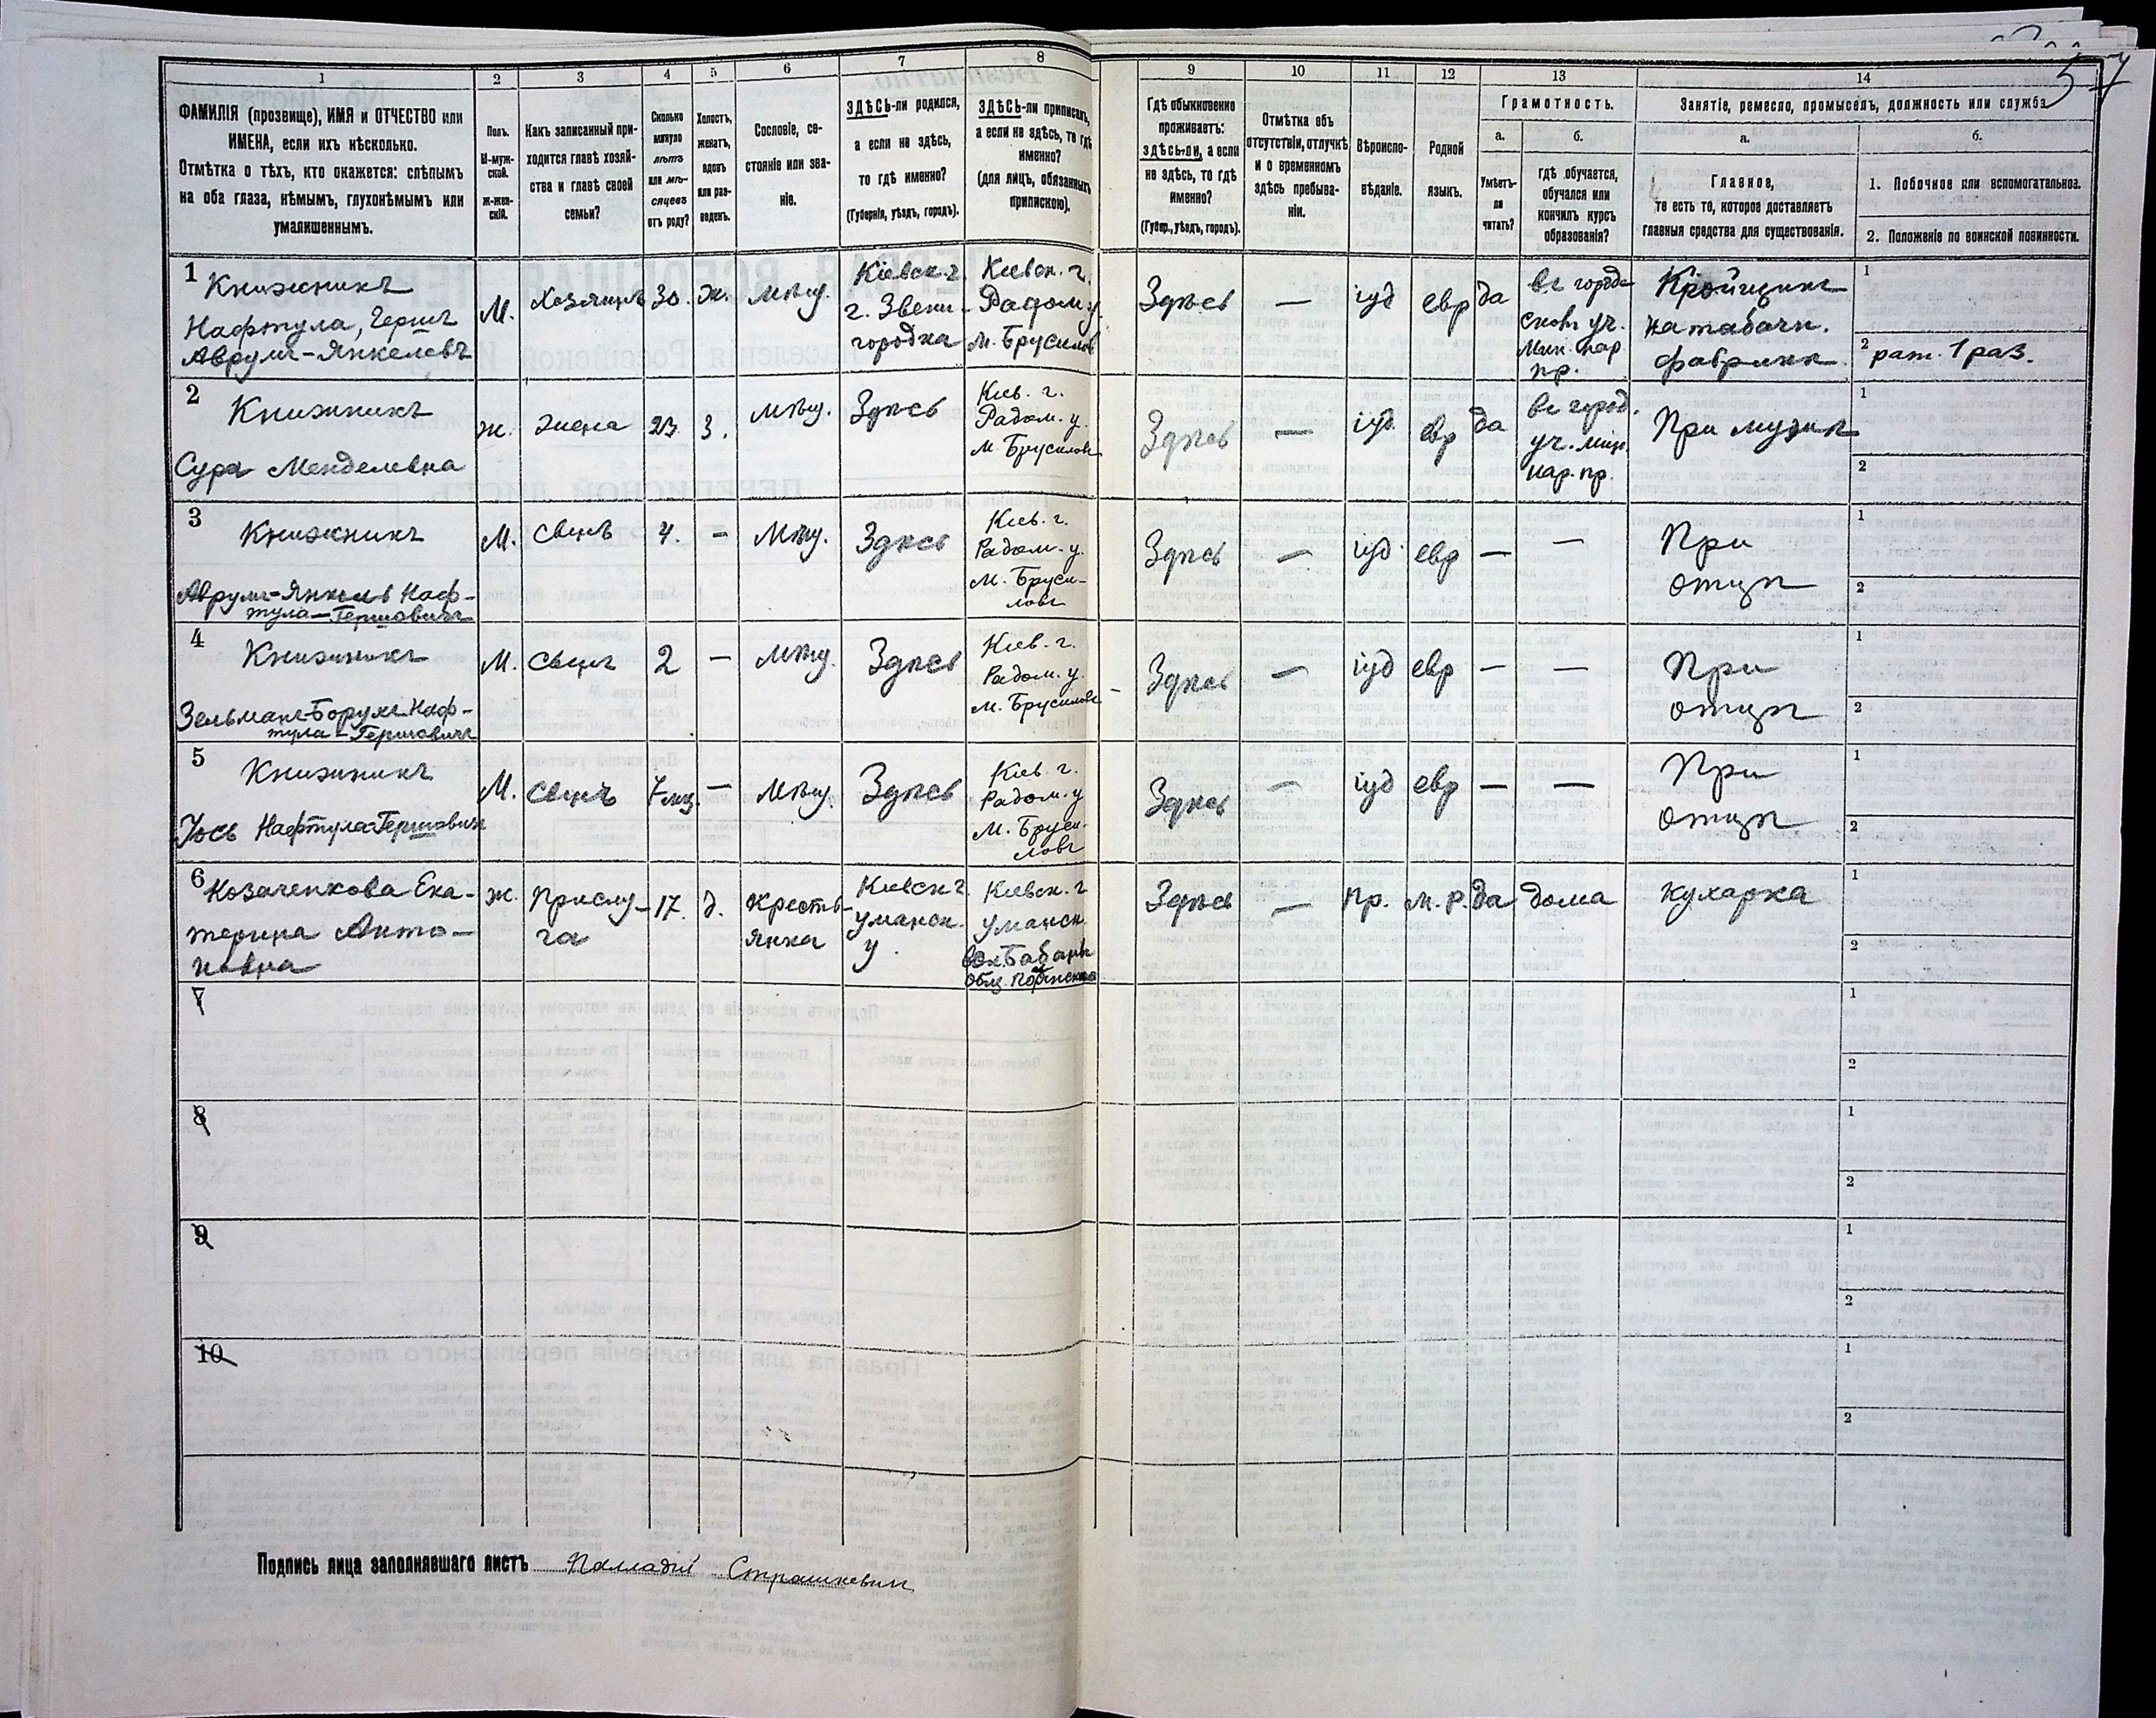 57
1 2 3 4 5 6 7 8 9 10 11 12 13 14
ФАМИЛІЯ (прозвище), ИМЯ и ОТЧЕСТВО или
ИМЕНА, если ихъ нѣсколько.
Отмѣтка о тѣхъ, кто окажется: слѣпымъ
на оба глаза, нѣмымъ, глухонѣмымъ или
умалишеннымъ.
Полъ.
М-муж-
ской.
ж-жен-
скій.
Какъ записанный при-
ходится главѣ хозяй-
ства и главѣ своей
семьи?
Сколько
минуло
лѣтъ
или мѣ-
сяцевъ
отъ роду?
Холостъ,
женатъ,
вдовъ
или раз-
веденъ.
Сословіе, со-
стояніе или зва-
ніе.
ЗДѢСЬ-ли родился,
а если не здѣсь,
то гдѣ именно?
(Губернія, уѣздъ, городъ).
ЗДѢСЬ-ли приписанъ,
а если не здѣсь, то гдѣ
именно?
(для лицъ, обязанныхъ
припискою).
Гдѣ обыкновенно
проживаетъ:
здѣсь-ли, а если
не здѣсь, то гдѣ
именно?
(Губер., уѣздъ, городъ).
Отмѣтка объ
отсутствіи, отлучкѣ
и о временномъ
здѣсь пребыва-
ніи.
Вѣроиспо-
вѣданіе.
Родной
языкъ.
Грамотность.
а.
Умѣетъ-
ли
читать?
б.
гдѣ обучается,
обучался или
кончилъ курсъ
образованія?
Занятіе, ремесло, промыселъ, должность или служба
а.
Главное,
то есть то, которое доставляетъ
главныя средства для существованія.
б.
1. Побочное или вспомогательное.
2. Положеніе по воинской повинности.
1
Книжникъ
Нафтула, Герш
Аврумъ-Янкелевъ
М.
Хозяинъ
30.
Ж.
Мѣщ.
Кіевск. г.
г. Звени-
городка
Кіевск. г.
Радом. у.
м. Брусилов
Здѣсь
—
іуд
евр
да
въ городо
скомъ уч.
Мин. нар
пр.
Кройщикъ
на табачн.
фабрикѣ
1
2 рат. 1 раз.
2
Книжникъ
Сура Менделевна
ж.
жена
23
З.
Мѣщ.
Здѣсь
Кіев. г.
Радом. у.
М. Брусиловъ
Здѣсь
—
іуд
евр
да
въ город.
уч. мин.
нар. пр.
При мужѣ
1
2
3
Книжникъ
Аврумъ-Янкель Наф-
тула-Гершовичъ
М.
Сынъ
4.
-
Мѣщ.
Здѣсь
Кіев. г.
Радом. у.
М. Бруси-
ловъ
Здѣсь
—
іуд
евр
—
—
При
отцѣ
1
2
4
Книжникъ
Зельманъ-Борухъ Наф-
тула-Гершовичъ
М.
Сынъ
2
—
Мѣщ.
Здѣсь
Кіев. г.
Радом. у.
М. Брусиловъ
Здѣсь
—
іуд
евр
—
—
При
отцѣ
1
2
5
Книжникъ
Іось Нафтула-Гершович
М.
Сынъ
7 мц.
—
Мѣщ.
Здѣсь
Кіев. г.
Радом. у
М. Бруси-
ловъ
Здѣсь
—
іуд
евр
—
—
При
отцѣ
1
2
6
Козаченкова Ека-
терина Анто-
новна
ж.
Прислу-
га
17.
д.
кресть-
янка
Кіевск. г
уманск.
у.
Кіевск. г
уманск.
вол. Бабанк
Здѣсь
—
Пр.
м. р.
да
дома
кухарка
1
2
7
1
2
8
1
2
9
1
2
10
1
2
Подпись лица заполнявшаго листъ Палладій Страшкевич